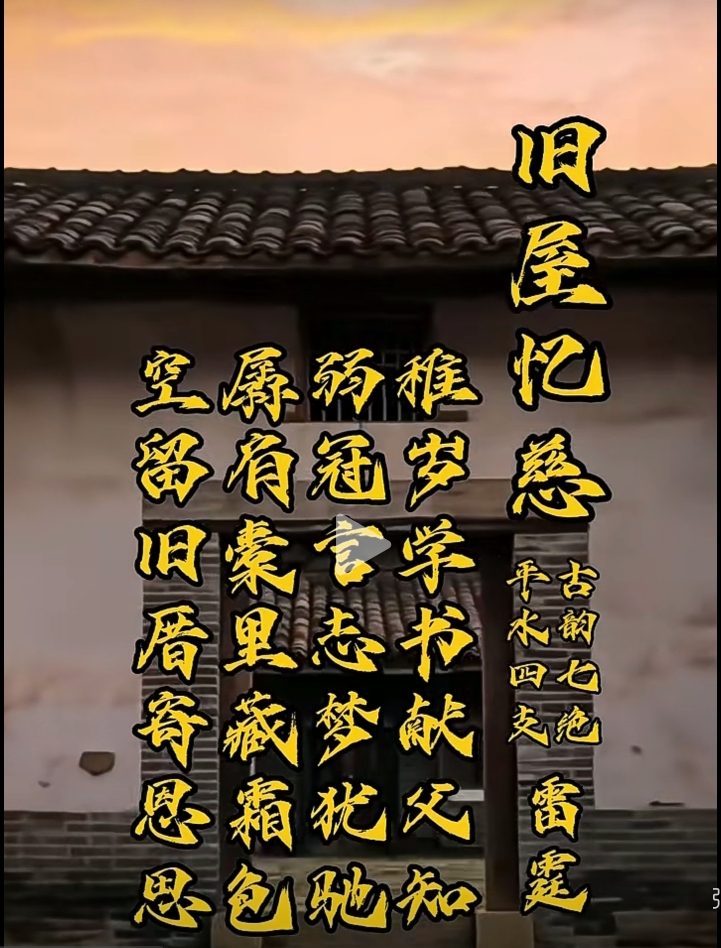 旧屋忆慈
古韵七绝
平水四支
雷霆
稚岁学书献父知
弱冠言志梦犹驰
孱肩橐里藏霜色
空留旧厝寄恩思